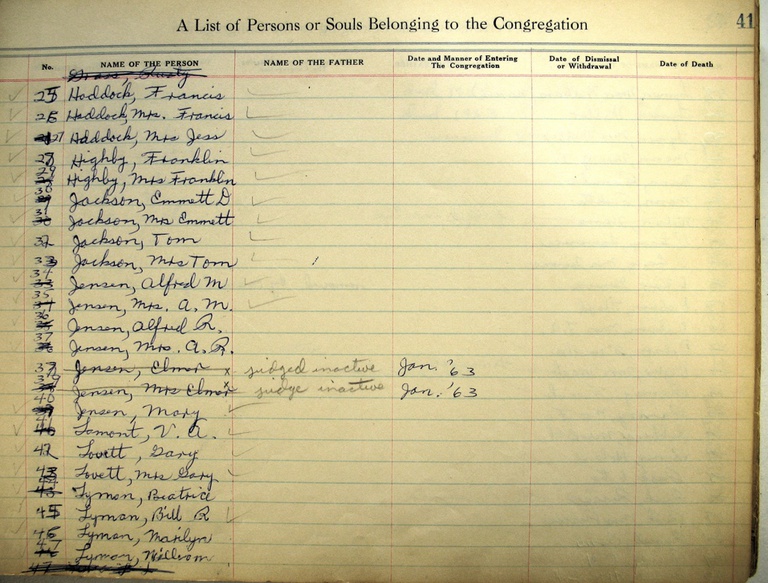 41
A List of Persons or Souls Belonging to the Congregation
No. NAME OF THE PERSON NAME OF THE FATHER Date and Manner of Entering The Congregation Date of Dismissal or Withdrawal Date of Death
25 Haddock, Francis
26 Haddock, Mrs. Francis
27 Haddock, Mrs Jess
28 Highby, Franklin
29 Highby, Mrs Franklin
30 Jackson, Emmett D
31 Jackson, Mrs Emmett
32 Jackson, Tom
33 Jackson, Mrs Tom
34 Jensen, Alfred M
35 Jensen, Mrs. A. M.
36 Jensen, Alfred R.
37 Jensen, Mrs. A. R.
Jensen, Elmer x judged inactive Jan. '63
Jensen, Mrs Elmer x judge inactive Jan. '63
40 Jensen, Mary
Lamont, V. A.
42 Lovett, Gary
43 Lovett, Mrs Gary
Lyman, Beatrice
45 Lyman, Bill R
46 Lyman, Marilyn
47 Lyman, William